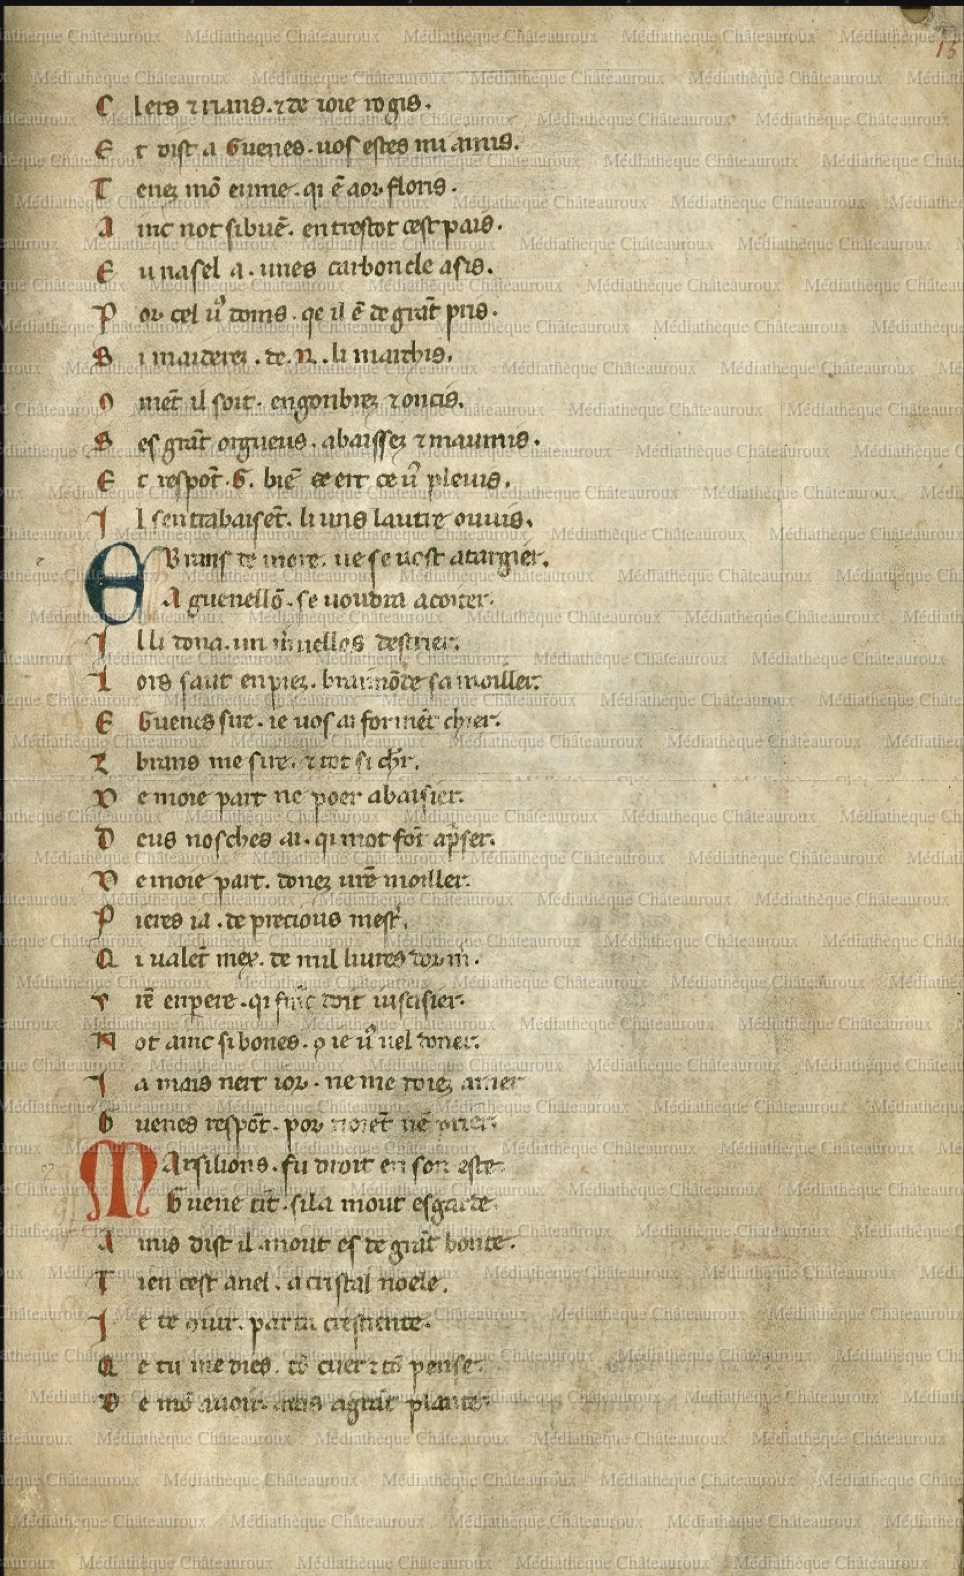 15
C lers ⁊ rians. ⁊ de ioie rogis.
E t dist a Guenes. uos estes mi amis.
T enez mō eume. qi ē a or floris.
A inc not si buē. en trestot cest pais.
E u nasel a. unes carboncle asis.
P or cel uͦ doins. qe il ē de grāt pris.
S i marderez. de .R. li marchis.
O mēt il soit. engonbrez ⁊ oncis.
S es grāt orgueus. abaissez ⁊ maumis.
E t respōt .G. biē ert ce uͦ pleuis.
I l sentrabaisēt. li uns lautre ou uis.
E Brans de more. ne se uost atargier.
A guenellō. se uoudra acoiter.
I l li dona. un destrier.
L ors saut en piez. braimōde sa moiller.
E Guenes sire. ie uos ai formēt chier.
E brans me sire. ⁊ tot si chr̄.
D e moie part ne poer abaisier.
D eus nosches ai. qi mot font ap̄ser.
D e moie part. donez ur̄e moiller.
P ieres ia. de precious mest̄.
Q i ualēt mex. de mil liures dor m̄.
V rē enpere. qi doit iusticier.
N ot ainc si bones. ꝯ ie uͦ uel doner.
I a mais nert ior. ne me doiez amer
G uenes respōt. por noiēt
M Arsilions. fu droit en son este.
Guene tīt. si la mout esgarde.
A mis dist il. mout es de grāt bonte.
T ien cest anel. a cristal noele.
I e te ꝯiur. par ta crestiente.
Q e tu me dies. tō cuer ⁊ tō pense.
D e mō auoir. auras a grāt plante.
Médiathèque Châteauroux